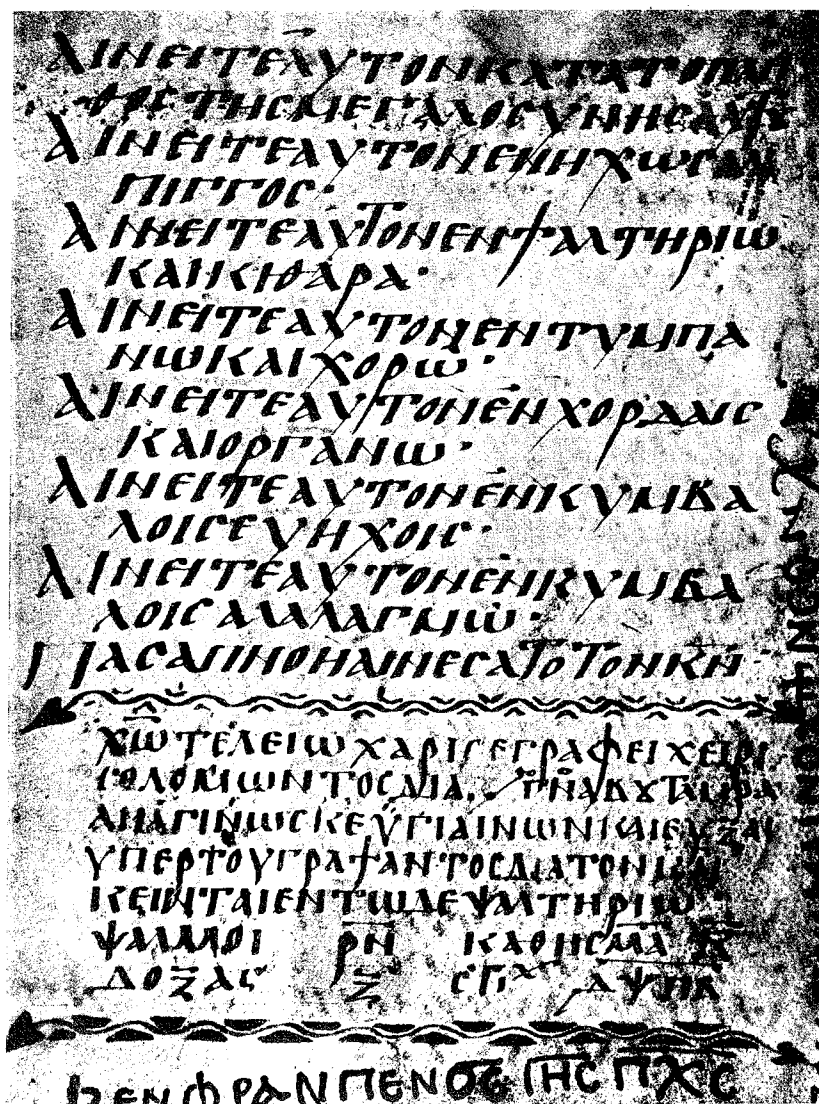 ΑΙΝΕΙΤΕΑΥΤΟΝΚΑΤΑΤΟΠΛΗ
ΘΟΣΤΗΣΜΕΓΑΛΟΣΥΝΗΣΑΥΤΟΥ
ΑΙΝΕΙΤΕΑΥΤΟΝΕΝΗΧΩΣΑΛ
ΠΙΓΓΟΣ·
ΑΙΝΕΙΤΕΑΥΤΟΝΕΝΨΑΛΤΗΡΙΩ
ΚΑΙΚΙΘΑΡΑ·
ΑΙΝΕΙΤΕΑΥΤΟΝΕΝΤΥΜΠΑ
ΝΩΚΑΙΧΟΡΩ·
ΑΙΝΕΙΤΕΑΥΤΟΝΕΝΧΟΡΔΑΙΣ
ΚΑΙΟΡΓΑΝΩ·
ΑΙΝΕΙΤΕΑΥΤΟΝΕΝΚΥΜΒΑ
ΛΟΙΣΕΥΗΧΟΙΣ·
ΑΙΝΕΙΤΕΑΥΤΟΝΕΝΚΥΜΒΑ
ΛΟΙΣΑΛΑΛΑΓΜΩ·
ΠΑΣΑΠΝΟΗΑΙΝΕΣΑΤΟΤΟΝΚΝ·
ΧΩΤΕΛΕΙΩΧΑΡΙΣΕΓΡΑΦΕΙΧΕΙΡΙ
ΣΟΛΟΚΙΩΝΤΟΣΔΙΑ
ΑΝΑΓΙΝΩΣΚΕΥΓΙΑΙΝΩΝΚΑΙΕΥΞΑΙ
ΥΠΕΡΤΟΥΓΡΑΨΑΝΤΟΣΔΙΑΤΟΝΚΝ
ΚΕΙΝΤΑΙΕΝΤΩΔΕΨΑΛΤΗΡΙΩ·
ΨΑΛΜΟΙ ΡΝ ΚΑΘΗΣΜΑ Κ
ΔΟΞΑΣ Ξ ΣΤΙΧ ΔΨΠΒ
ϦΕΝΦΡΑΝΠΕΝΟΣ ΙΗΣ ΠΧΣ